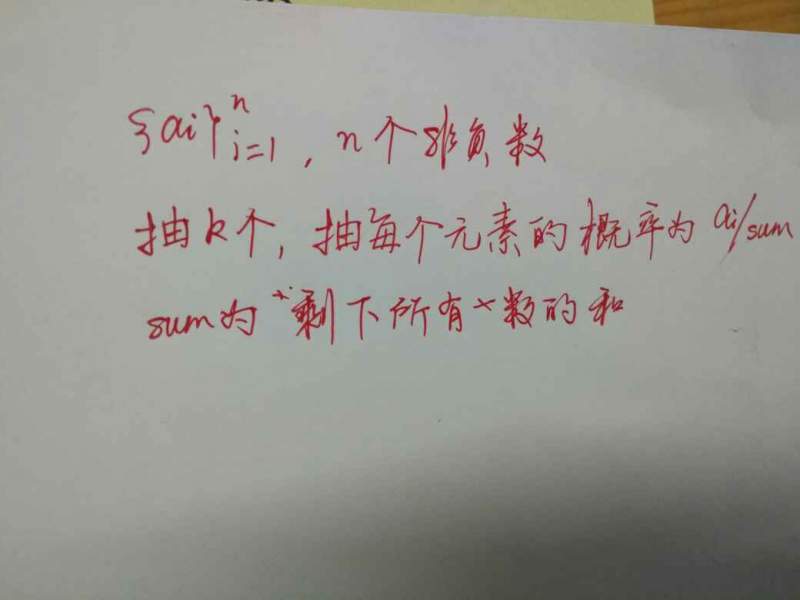 {ai}ⁿi=1, n个非负数
抽k个, 抽每个元素的概率为 ai/sum
sum为 剩下所有数的和